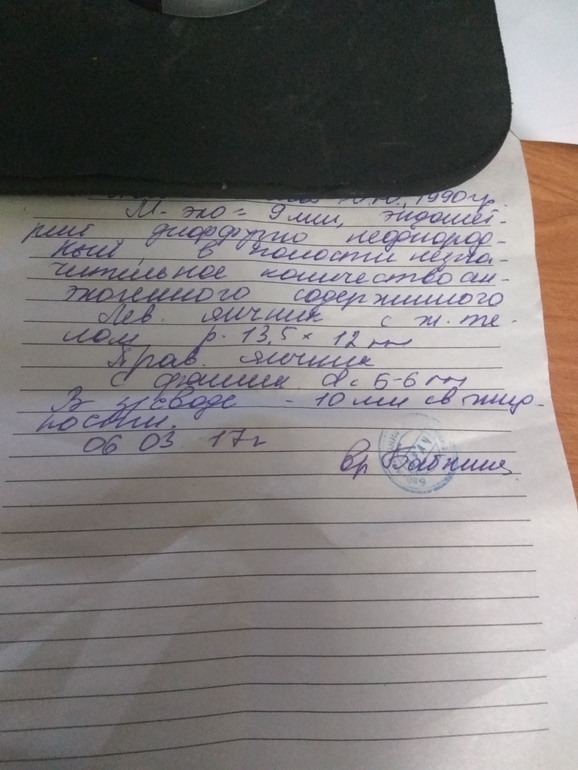 1990г.
М-эхо = 9 мм, эндомет-
рий диффузно неоднород-
ный, в полости незна-
чительное количество ан-
эхогенного содержимого
Лев. яичник с ж. те-
лом р. 13,5 × 12 мм
Прав. яичник
с фоллик. d = 5-6 мм
В зр своде - 10 мм св жид-
кости.
06 03 17г
вр Бабкина